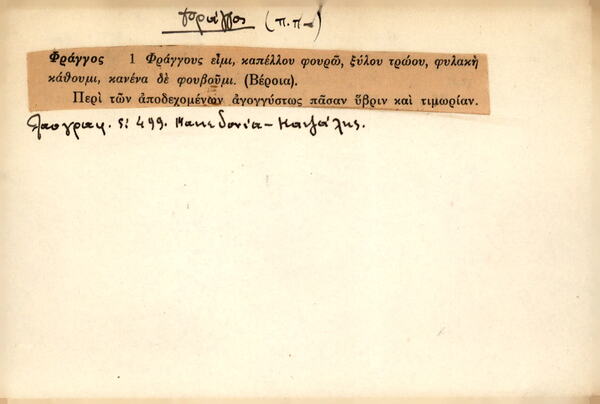 Φράγγος (π.π.)
Φράγγος 1 Φράγγους εἶμι, καπέλλου φουρῶ, ξύλου τρώου, φυλακὴ
κάθουμι, κανένα δὲ φουβοῦμι. (Βέροια).
Περὶ τῶν ἀποδεχομένων ἀγογγύστως πᾶσαν ὕβριν καὶ τιμωρίαν.
Λαογραφ. 499. Μακεδονία –